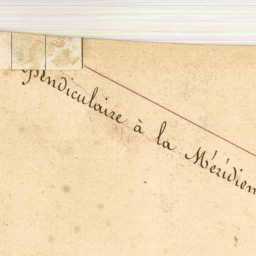 pendiculaire à la Méridien